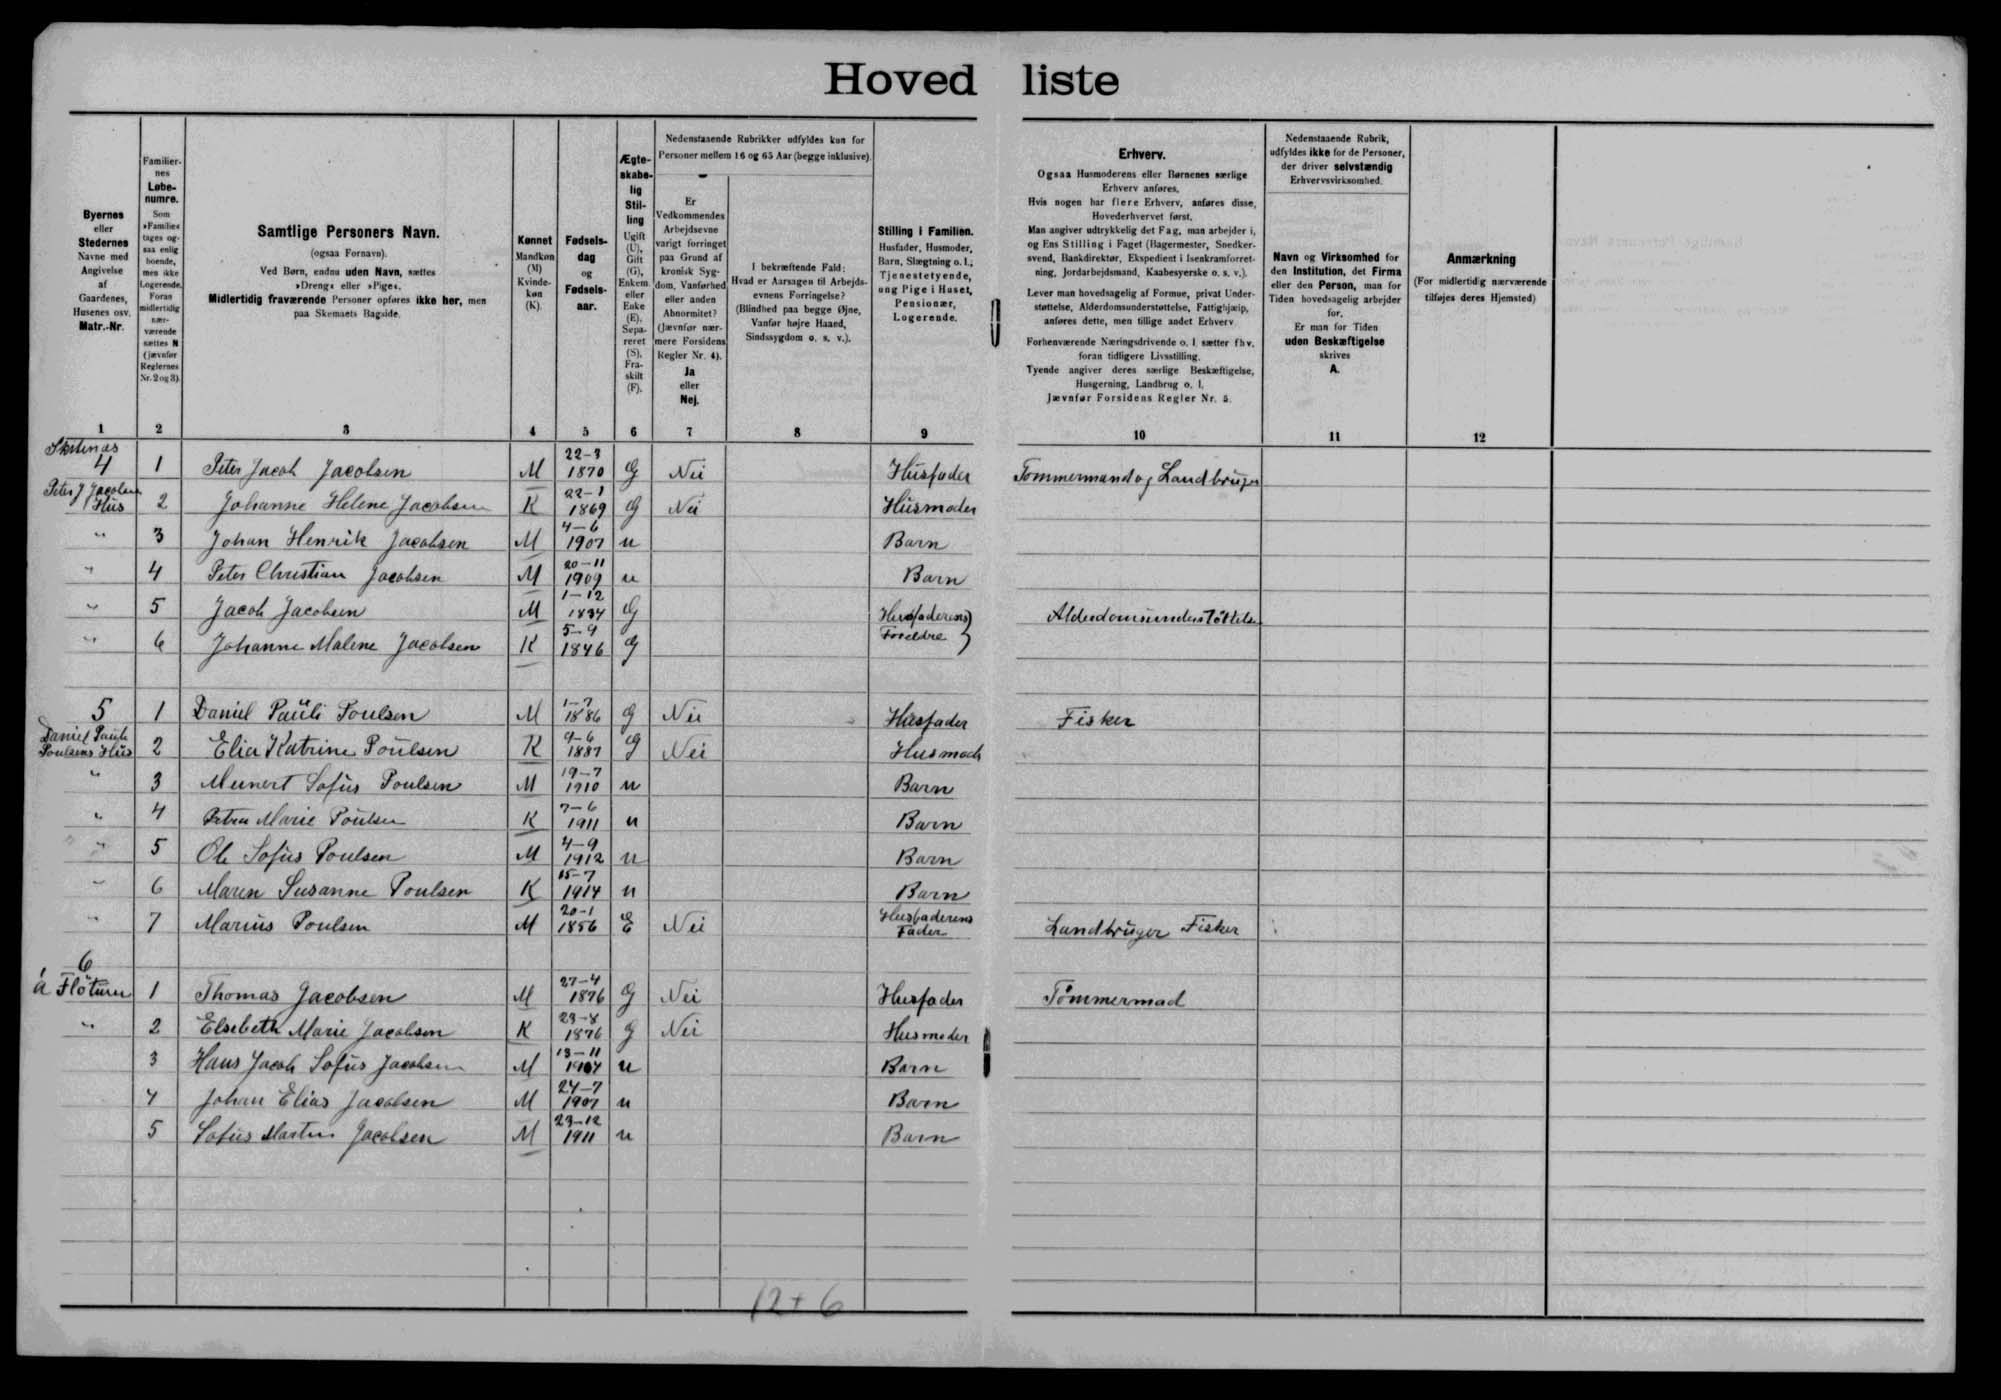 Hoved liste
Byernes
eller
Stedernes
Navne med
Angivelse
af
Gaardenes,
Husenes osv.
Matr.-Nr.
Familier-
nes
Løbe-
numre.
Som
»Familie«
tages og-
saa enlig
boende,
men ikke
Logerende.
Foran
midlertidig
nær-
værende
sættes N
(jævnfør
Reglernes
Nr. 2 og 3).
Samtlige Personers Navn.
(ogsaa Fornavn).
Ved Børn, endnu uden Navn, sættes
»Dreng« eller »Pige«.
Midlertidig fraværende Personer opføres ikke her, men
paa Skemaets Bagside.
Kønnet
Mandkøn
(M)
Kvinde-
køn
(K).
Fødsels-
dag
og
Fødsels-
aar.
Ægte-
skabe-
lig
Stil-
ling
Ugift
(U),
Gift
(G),
Enkem.
eller
Enke
(E),
Sepa-
reret
(S),
Fra-
skilt
(F).
Nedenstaaende Rubrikker udfyldes kun for
Personer mellem 16 og 65 Aar (begge inklusive).
Er
Vedkommendes
Arbejdsevne
varigt forringet
paa Grund af
kronisk Syg-
dom, Vanførhed
eller anden
Abnormitet?
(Jævnfør nær-
mere Forsidens
Regler Nr. 4).
Ja
eller
Nej.
I bekræftende Fald:
Hvad er Aarsagen til Arbejds-
evnens Forringelse?
(Blindhed paa begge Øjne,
Vanfør højre Haand,
Sindssygdom o. s. v.).
Stilling i Familien.
Husfader, Husmoder,
Barn, Slægtning o. l.,
Tjenestetyende,
ung Pige i Huset,
Pensionær,
Logerende.
Erhverv.
Ogsaa Husmoderens eller Børnenes særlige
Erhverv anføres.
Hvis nogen har flere Erhverv, anføres disse,
Hovederhvervet først.
Man angiver udtrykkelig det Fag, man arbejder i,
og Ens Stilling i Faget (Bagermester, Snedker-
svend, Bankdirektør, Ekspedient i Isenkramforret-
ning, Jordarbejdsmand, Kaabesyerske o. s. v.).
Lever man hovedsagelig af Formue, privat Under-
støttelse, Alderdomsunderstøttelse, Fattighjælp,
anføres dette, men tillige andet Erhverv
Forhenværende Næringsdrivende o. l. sætter fhv.
foran tidligere Livsstilling.
Tyende angiver deres særlige Beskæftigelse,
Husgerning, Landbrug o. l.
Jævnfør Forsidens Regler Nr. 5.
Nedenstaaende Rubrik,
udfyldes ikke for de Personer,
der driver selvstændig
Erhvervsvirksomhed.
Navn og Virksomhed for
den Institution, det Firma
eller den Person, man for
Tiden hovedsagelig arbejder
for.
Er man for Tiden
uden Beskæftigelse
skrives
A.
Anmærkning
(For midlertidig nærværende
tilføjes deres Hjemsted)
1 2 3 4 5 6 7 8 9 10 11 12
4 1 Peter Jacob Jacobsen M 22-3 1870 G Nei Husfader Tømmermand og Landbruger
Peter J Jacobsens Hus 2 Johanne Helene Jacobsen K 22-1 1869 G Nei Husmoder
" 3 Johan Henrik Jacobsen M 4-6 1907 u Barn
" 4 Peter Christian Jacobsen M 20-11 1909 u Barn
" 5 Jacob Jacobsen M 1-12 1834 G Husfaderens Alderdomsunderstøttelse
" 6 Johanne Malene Jacobsen K 5-9 1846 G Foreldre }
5 1 Daniel Pauli Poulsen M 1-7 1886 G Nei Husfader Fisker
Daniel Pauli Poulsens Hus 2 Elia Katrine Poulsen K 9-6 1887 G Nei Husmode
" 3 Meinert Sofus Poulsen M 19-7 1910 u Barn
" 4 Petra Marie Poulsen K 7-6 1911 u Barn
" 5 Ole Sofus Poulsen M 4-9 1912 u Barn
" 6 Maren Susanne Poulsen K 15-7 1914 u Barn
" 7 Marius Poulsen M 20-1 1856 E Nei Husfaderens Fader Landbruger Fisker
6
á Fløtum 1 Thomas Jacobsen M 27-4 1876 G Nei Husfader Tømmermad
" 2 Elsebeth Marie Jacobsen K 23-8 1876 G Nei Husmoder
3 Hans Jacob Sofus Jacobsen M 13-11 1904 u Barn
4 Johan Elias Jacobsen M 24-7 1907 u Barn
5 Sofus Martin Jacobsen M 23-12 1911 u Barn
12+6